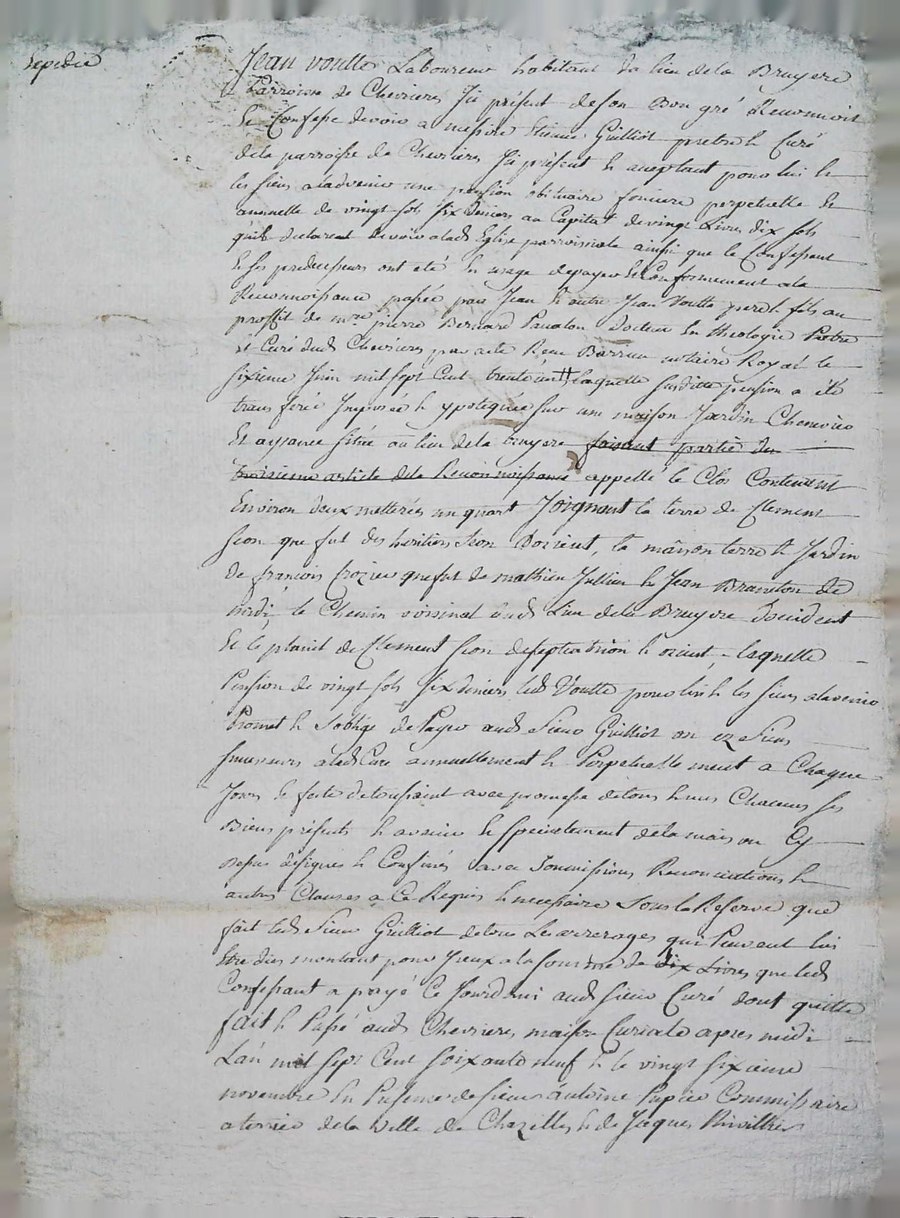 Expedié
Jean Voulte Laboureur habitant du lieu de la Bruyere
Parroisse de Chevrieres Icy présent de son Bon gré Reconnoit
Et Confesse devoir a messire Etienne Guilliot pretre et Curé
dela parroisse de Chevrieres Icy présent et acceptant pour lui et
les siens aladvenir une pension obituaire fonciere perpetuelle et
annuelle de vingt sols six deniers au Capital de vingt Livres dix sols
quils declarent devoir alad Eglise parroissiale ainsi que le Confessant
Et ses predecesseurs ont eté En usage depayer Et Conformement ala
Reconnoissance passée par Jean Et autre Jean Voulte pere et fils au
proffit de mre pierre Bernard Pavalon Docteur En theologie Pretre
et Curé dud Chevrieres par acte Reçu Barrieu notaire Royal le
sixieme Juin mil sept Cent trente un # laquelle susditte pension a été
transferée Imposée et ypotequée sur une maison Jardin Chenevier
Et aysance sittué au lieu dela bruyere faisant partie du
troisieme article dela Reconnoissance appellé le Clos Contenant
Environ deux metterées un quart Joignant la terre de Clement
sion que fut des heritiers Jean , la maison terre et Jardin
de francois Crozier que fut de mathieu Jullien et Jean de
midi, le Chemin voisinal dud Lieu dela Bruyere doccident
Et le plasit de Clement sion deseptentrion et orient, laquelle
Pension de vingt sols six deniers led Voulte pour lui et les siens alavenir
Promet et Soblige de Payer aud Sieur Guilliot ou ez Siens
successeurs alad Cure annuellement et Perpetuellement a Chaque
Jour et feste detoussaint avec promesse detous et uns Chacuns ses
Biens présents et avenir et specialement dela maison Cy
dessus désignés et Confinés avec Soumissions Renonciations et
autres Clauses a Ce Requis et necessaire Sous la Reserve que
fait led Sieur Guilliot detous Les arrerages qui Peuvent lui
Etre dus montant pour Iceux à la somme de dix Livres que led
Confessant a payé Ce Jourdhui aud sieur Curé dont quitte
fait et Passé aud Chevrieres maison Curiale apres midi
Lan mil sept Cent soixante neuf et le vingt sixieme
novembre En Présence de sieur antoine Papier Commissaire
a terrier dela Ville de Chazelles et de Jacques